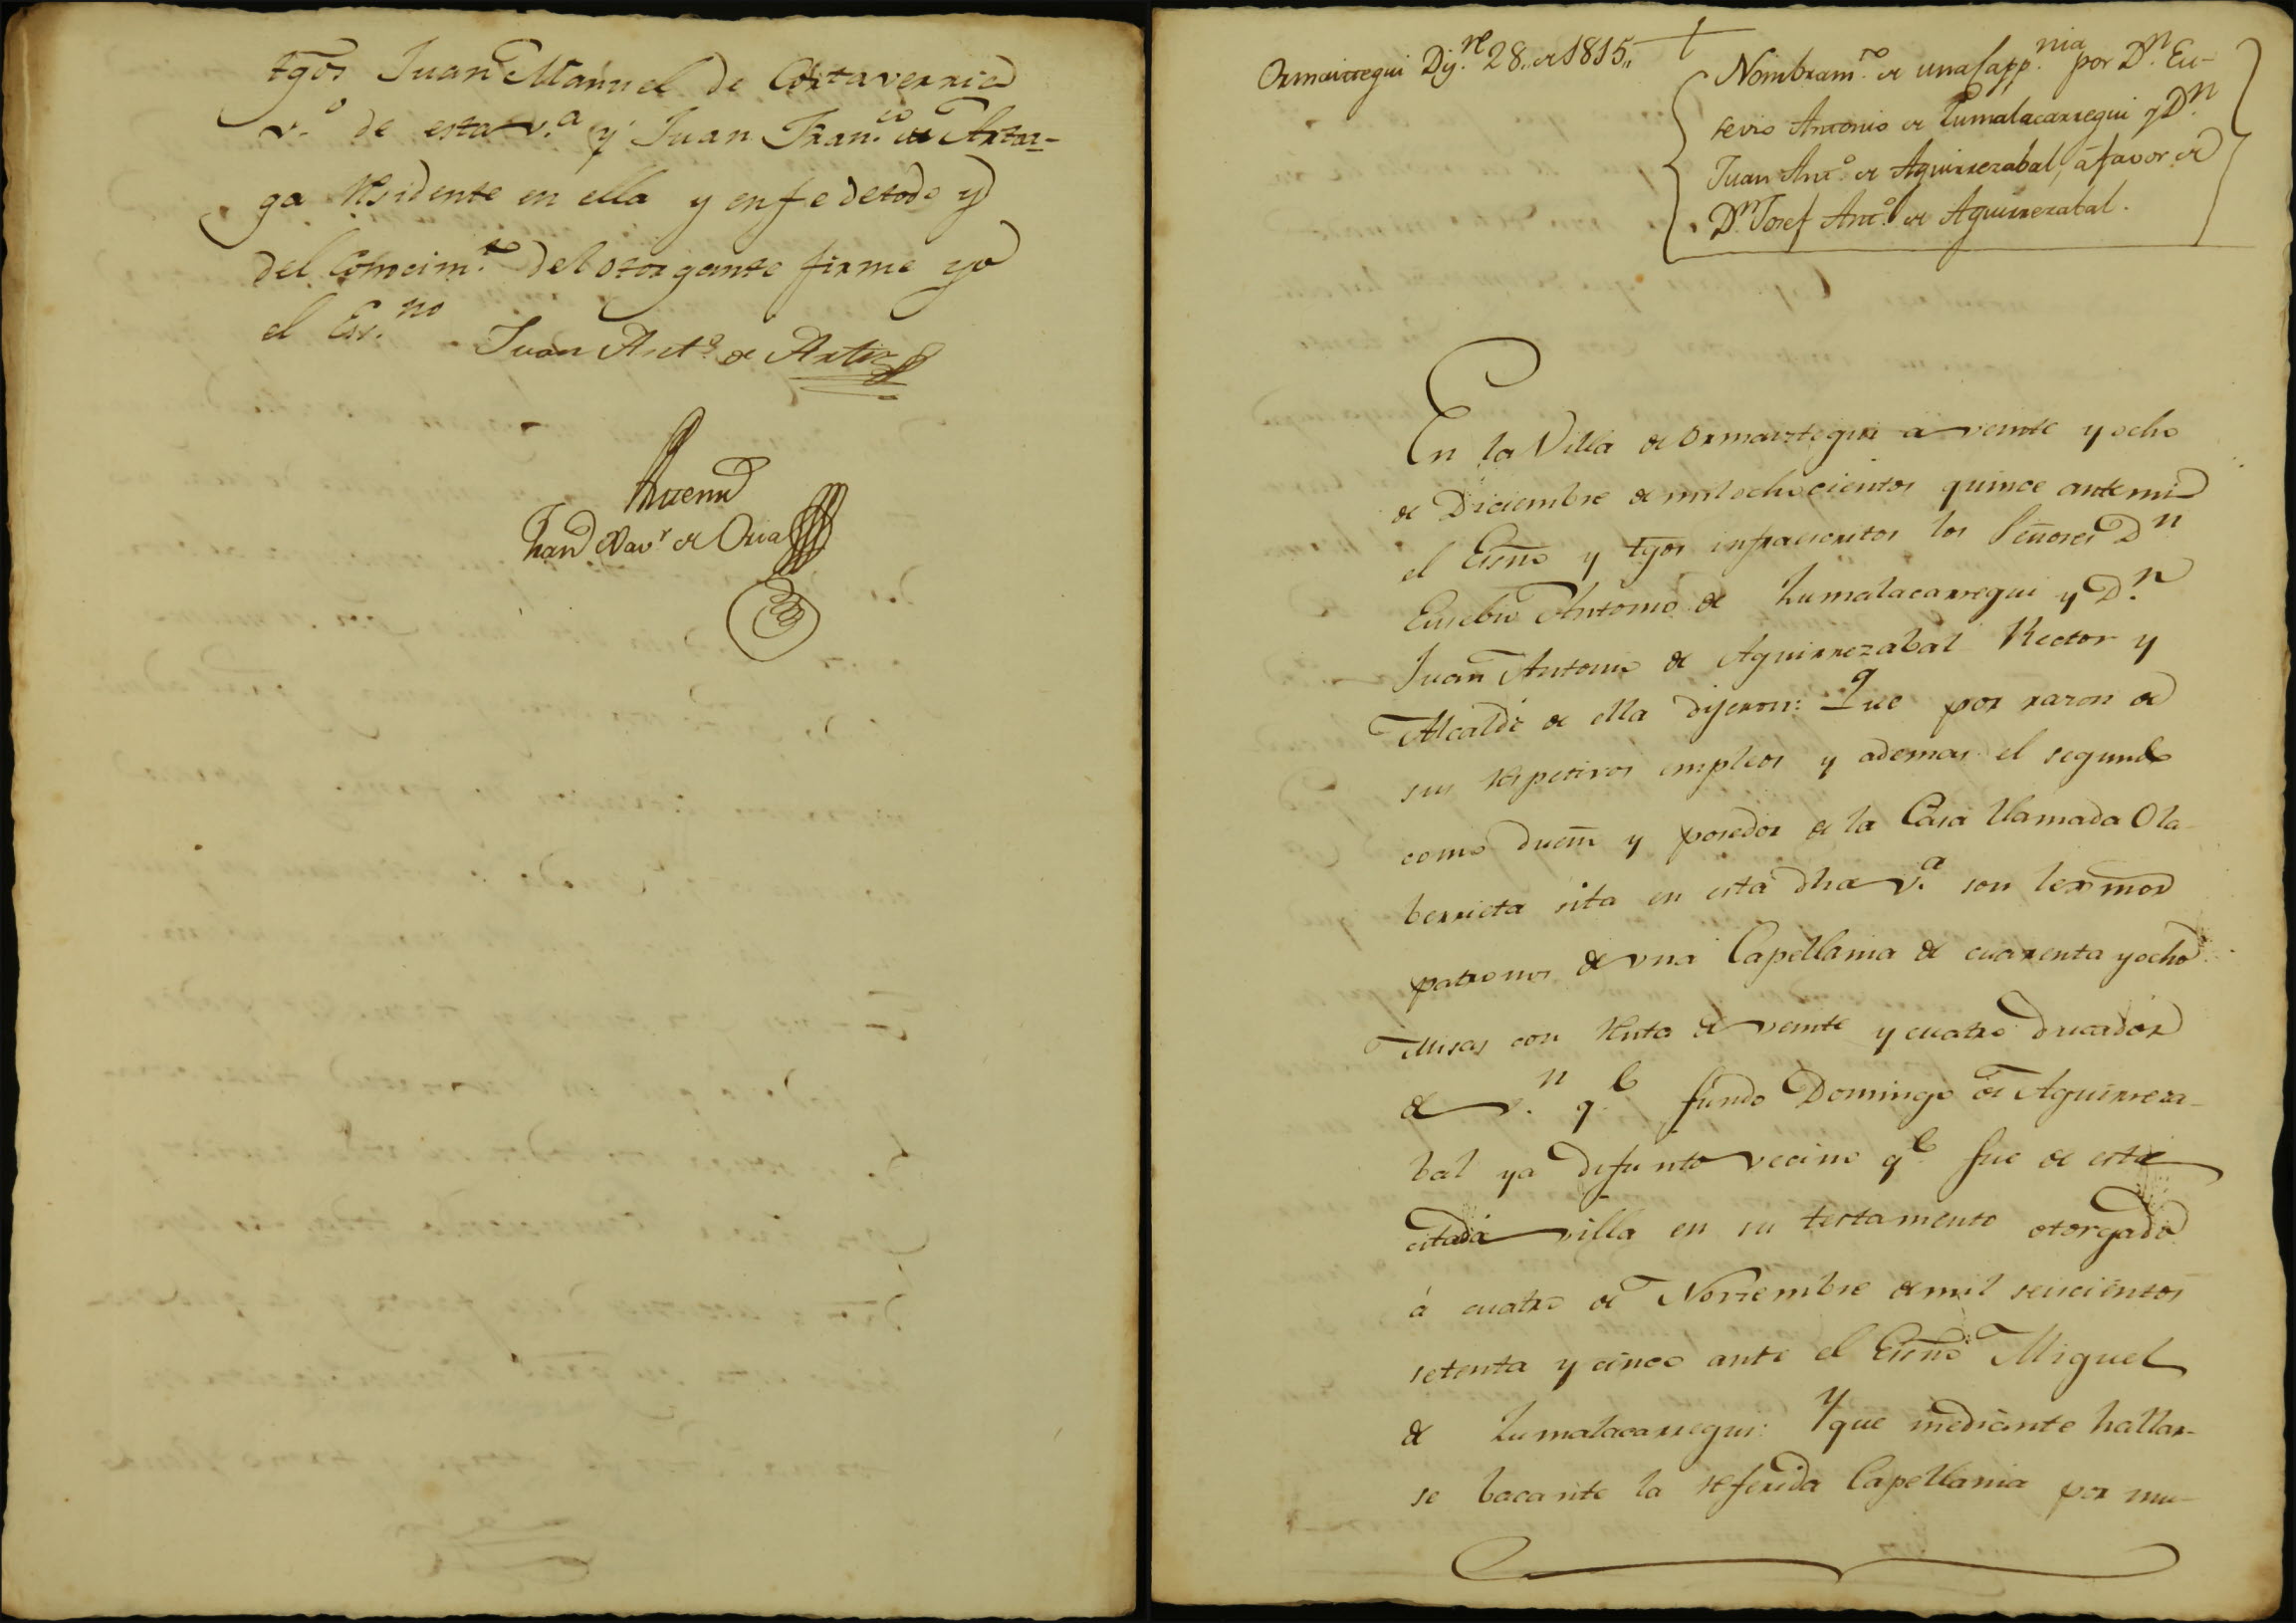 tgos Juan Manuel de Cortaverria
v.º de esta v.ª y Juan Fran.co de Artea-
ga residente en ella y en fe de todo y
del Conocim.to del otorgante firme yo
el Es.no Juan Ant.º de
Antemi
Juan Xav.r de Oria
Ormaiztegui Diz.re 28,, de 1815,,
Nombram.to de una Capp.nia por D.n Eu-
sevio Antonio de Zumalacarregui y D.n
Juan Ant.º de Aguirrezabal, á favor de
D.n Josef Ant.º de Aguirrezabal.
En la Villa de Ormaiztegui a veinte y ocho
de Diciembre de mil ochocientos quince ante mi
el Esno y tgos infraescritos los Señores D.n
Eusebio Antonio de Zumalacarregui y D.n
Juan Antonio de Aguirrezabal Rector y
Alcalde de ella dijeron: Que por razon de
sus respetivos empleos y ademas el segundo
como dueño y posedor de la Casa llamada Ola-
berrieta sita en esta dha v.ª son lexmos
patronos de una Capellania de cuarenta y ocho
Misas con renta de veinte y cuatro ducados
de v.n q.e fundo Domingo de Aguirreza-
bal ya difunto vecino q.e fue de esta
citada villa en su testamento otorgado
á cuatro de Noviembre de mil seiscientos
setenta y cinco ante el Esno Miguel
de Zumalacarregui: Y que mediante hallar-
se bacante la referida Capellania por mu-